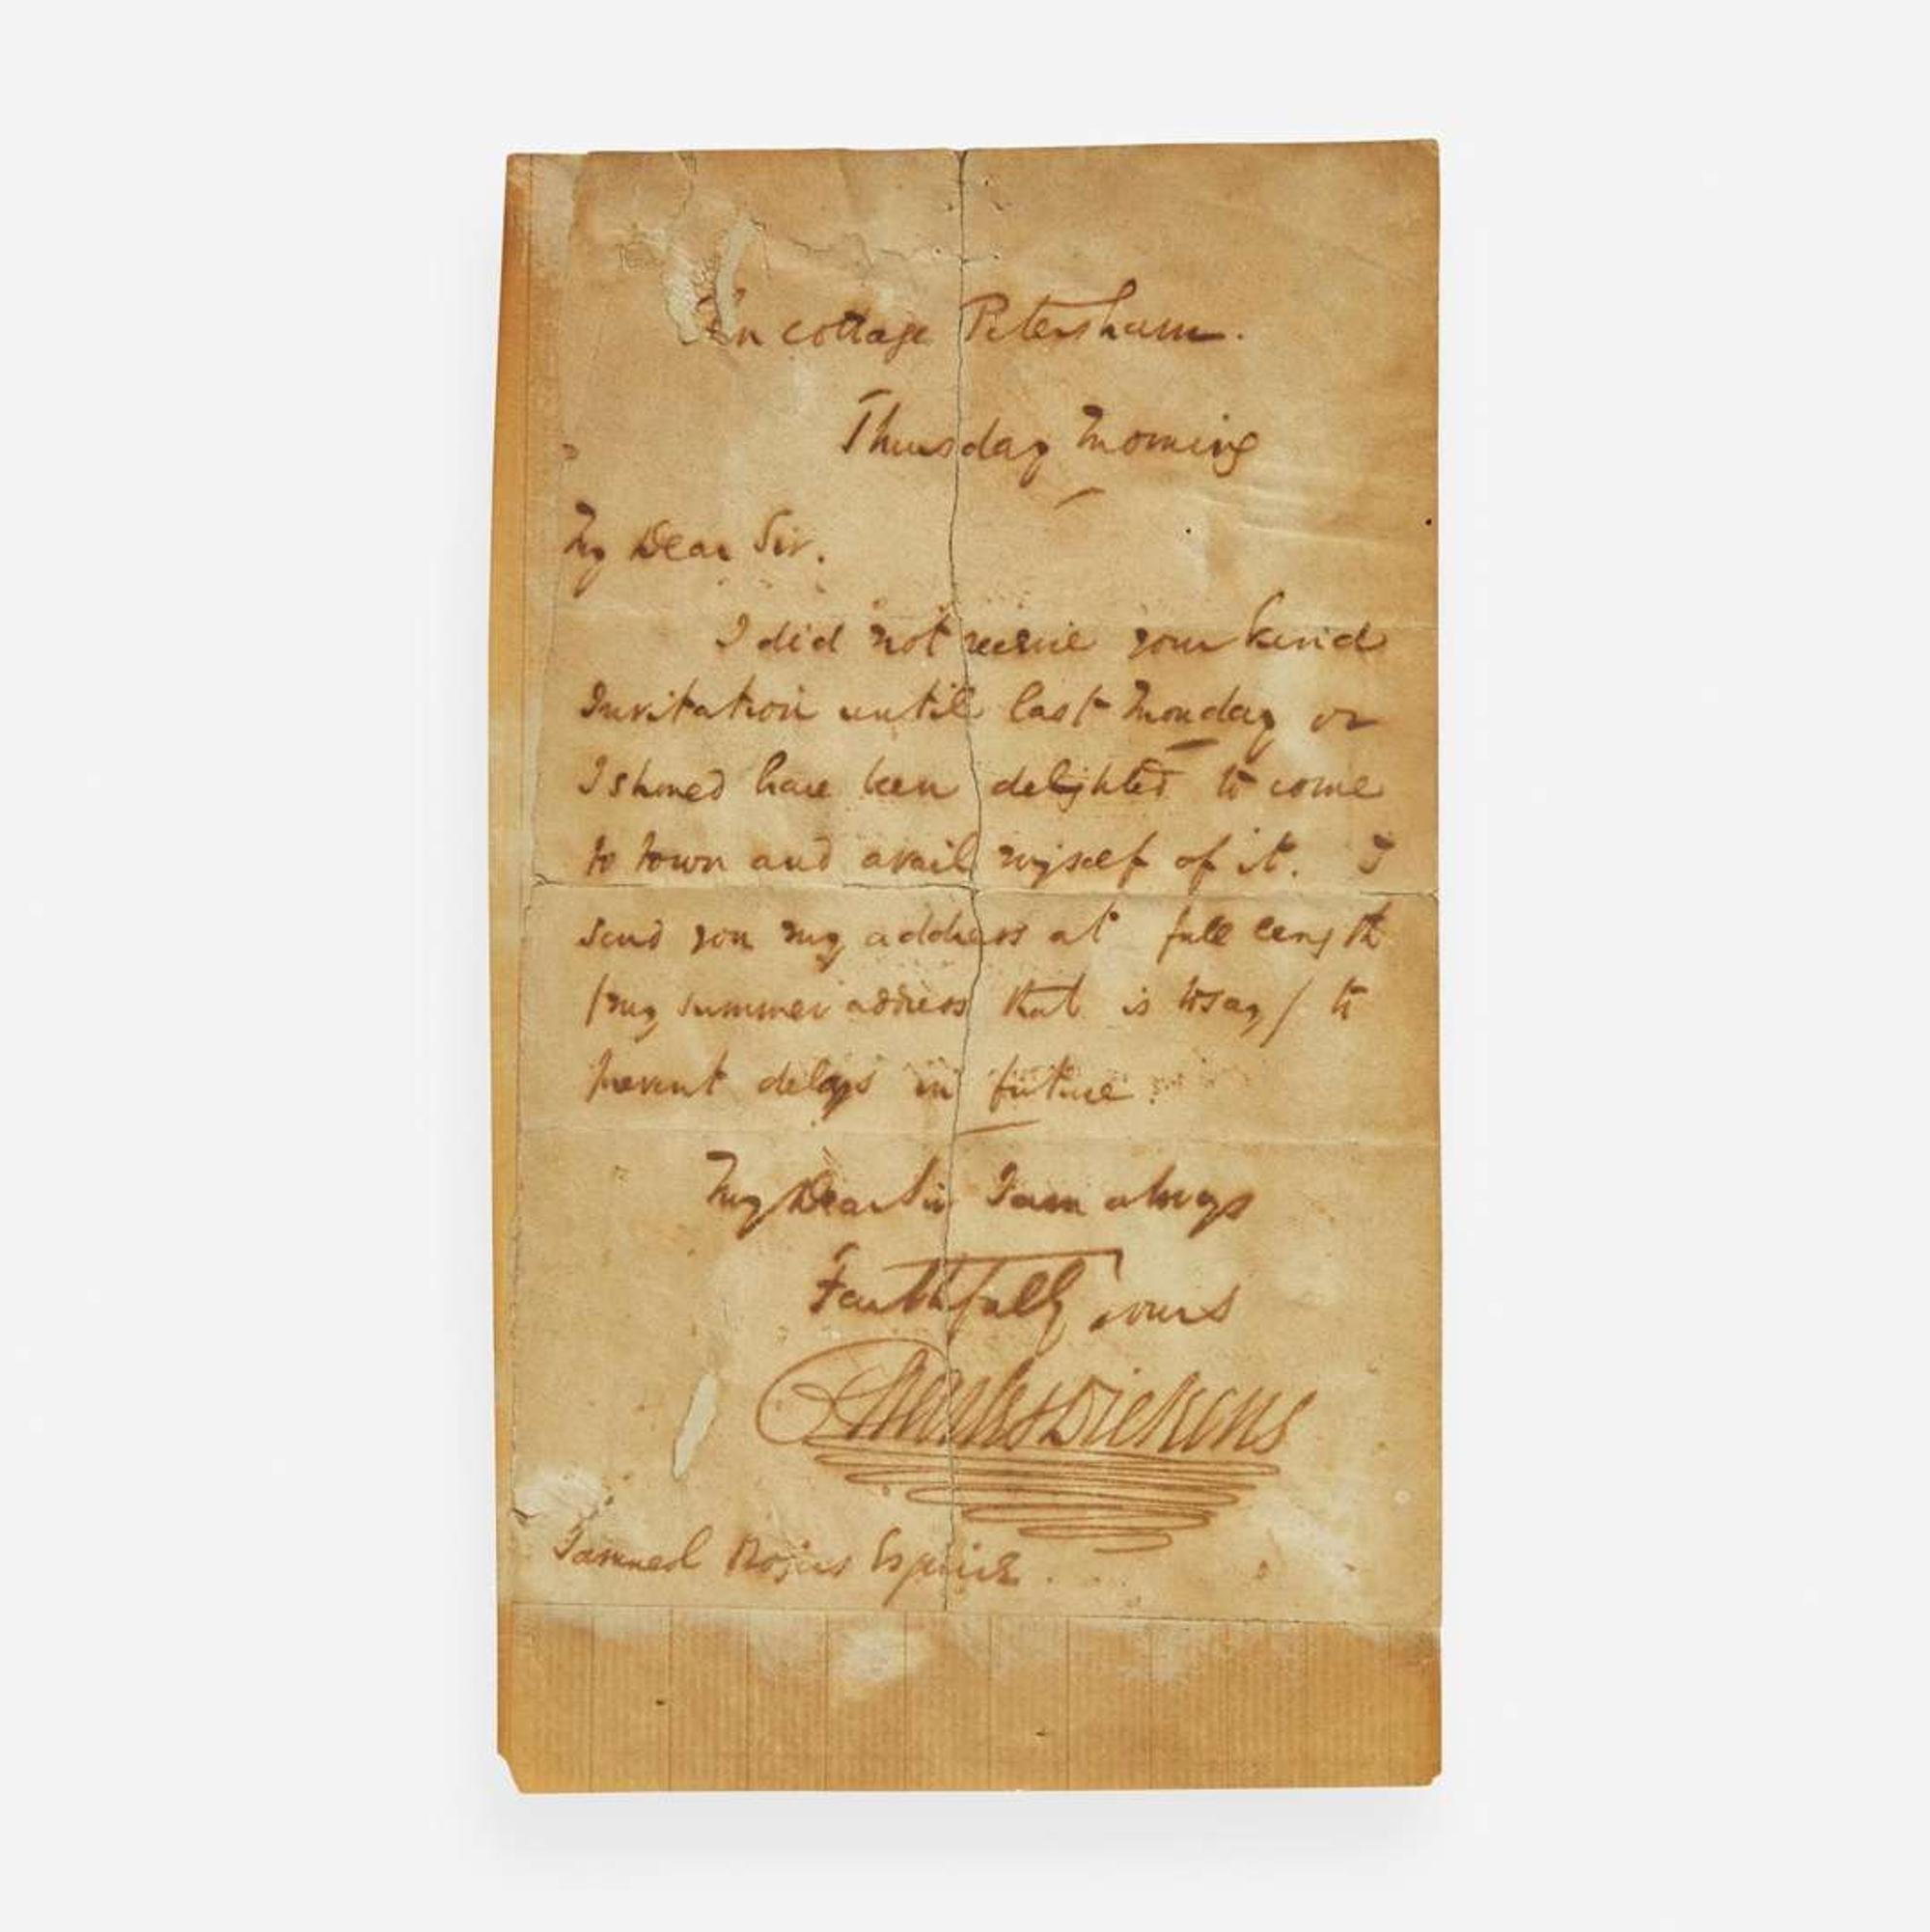 Cottage Petersham.
Thursday Morning
My Dear Sir.
I did not receive your kind
Invitation until last Monday or
I should have been delighted to come
to town and avail myself of it. I
send you my address at full length
/my summer address that is to say/ to
prevent delays in future.
My Dear Sir I am always
Faithfully yours
Charles Dickens
Samuel Rogers Esquire.